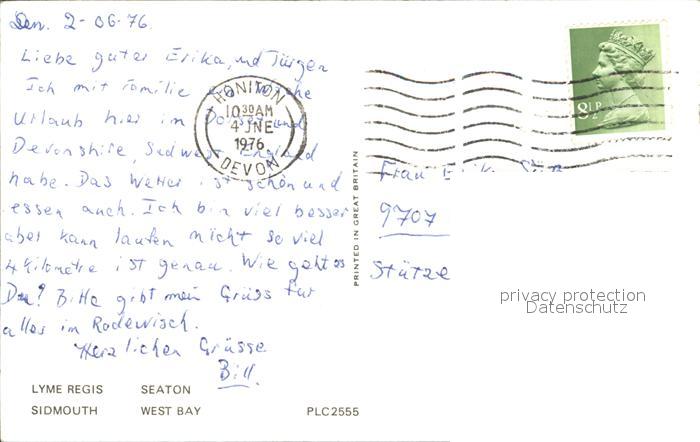 Den. 2-06-76.
Liebe guter Erika, und Jürgen
Ich mit Familie Woche
Urlaub hier im Dorset und
Devonshire, Sudwest England
habe. Das Wetter ist schön und
essen auch. Ich bin viel besser
aber kann laufen nicht so viel
4 Kilometre ist genau. Wie geht es
Du? Bitte gibt mein Grüss für
alles im Rodewisch.
Herzlichen Grüsse
Bill.
HONITON
10 30 AM
4 JNE
1976
DEVON
8½P
PRINTED IN GREAT BRITAIN
Frau Erika
9707
Stütze
privacy protection
Datenschutz
LYME REGIS SEATON
SIDMOUTH WEST BAY PLC2555